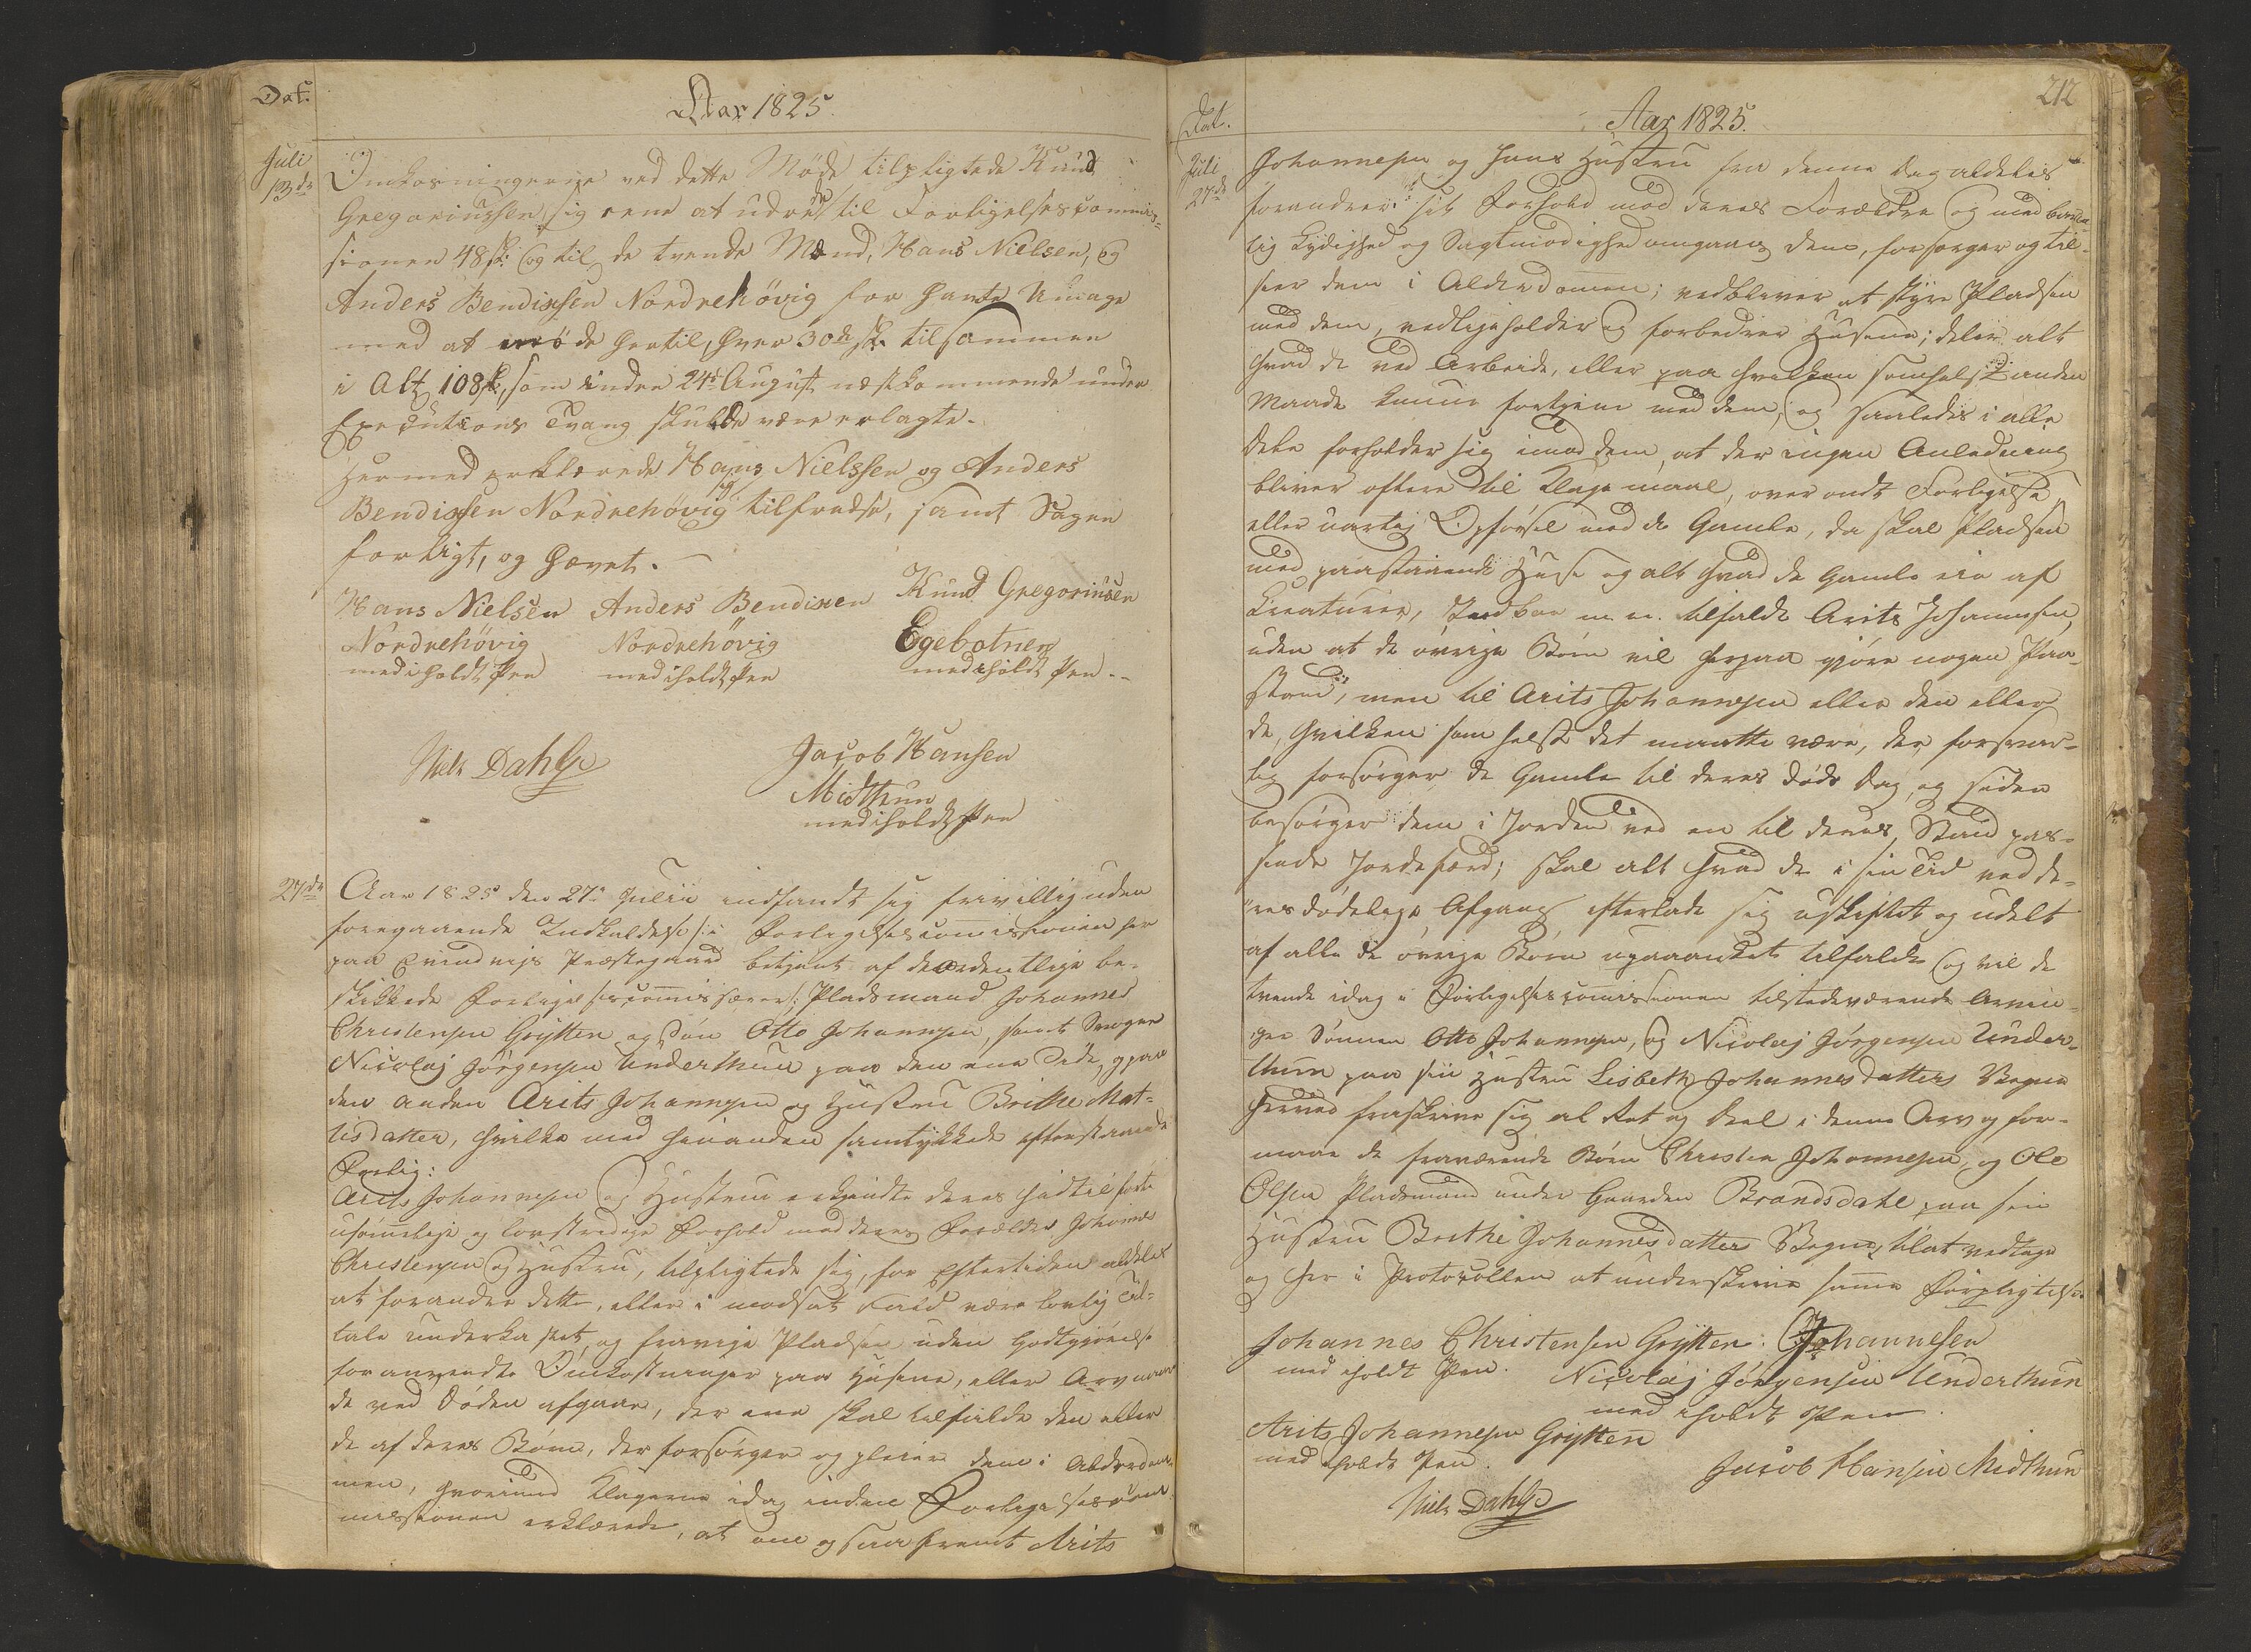 Dat.
Aar 1825.
Juli
13de
Omkosningerne ved dette Møde tilpligtede Knud
Gregoriussen sig ene at udrede til Forligelsescommis-
sionen 48 sk: og til de tvende Mænd, Hans Nielsen, og
Anders Bendixsen Nordrehövig for havte Umage
med at möde hertil, hver 30 sk. tilsammen
i Alt 108 sk, som inden 24de August næstkommende under
Executions Tvang skulde være erlagte.
Hermed erklærede Hans Nielssen og Anders
Bendixsen Nordrehövig sig tilfredse, samt Sagen
forligt, og hævet.
Hans Nielsen Anders Bendixen Knud Gregoriusen
Nordrehövig Nordrehövig Egebotnen
med iholdt Pen med iholdt Pen med iholdt Pen
Niels Dahl Jacob Hansen
Midthun
med iholdt Pen
27de
Aar 1825 den 27de Julii indfandt sig frivillig uden
foregaaende Indkaldelse i Forligelsescommissionen her
paa Evindvigs Præstegaard betjent af de ordentlige be-
skikkede Forligelsescommissærer: Pladsmand Johannes
Christensen Grytten og Søn Otto Johannesen, samt Svoger
Nicolaj Jörgensen Underthun paa den ene Side, og paa
den anden Arits Johannesen og Hustru Brithe Mat-
tisdatter, hvilke med hinanden samtykkede efterstaaende
Forlig:
Arits Johannesen og Hustru erkjendte deres hidtil førte
usømmelige og lovstridige Forhold mod deres Forældre Johannes
Christensen og Hustru, tilpligtede sig, for Eftertiden aldeles
at forandre dette, eller i modsat Fald være lovlig Til-
tale underkastet, og fravige Pladsen uden Godtgjörelse
for anvendte Omkostninger paa Husene, eller Arv naar
de ved Döden afgaae, der ene skal tilfalde den eller
de af deres Börn, der forsörger og pleier dem i Alderdom-
men, hvorimod Klagerne idag inden Forligelsescom-
missionen erklærede, at om og saafremt Arits
212
Dat.
Aar 1825.
Juli
27de
Johannesen og hans Hustru fra denne Dag aldeles
forandrer sit Forhold mod deres Forældre og med barn-
lig Lydighed og Sagtmodighed omgaaes dem, forsørger og til-
seer dem i Alderdommen; vedbliver at styre Pladsen
med dem, vedligeholder og forbedrer Husene; deler alt
hvad de ved Arbeide, eller paa hvilken somhelst anden
Maade kunne fortjene med dem, og saaledes i alle
Dele forholder sig imod dem, at der ingen Anledning
bliver oftere til Klagemaal, over ondt Forligelse
eller uartig Opførsel mod de Gamle, da skal Pladsen
med paastaaende Huse og alt hvad de Gamle eie af
Creaturer, Indboe m. m. tilfalde Arits Johannesen
uden at de øvrige Børn vil herpaa gjøre nogen Paa-
stand, men til Arits Johannesen eller den eller
de, hvilken som helst det maatte være, der forsvar-
lig forsörger de Gamle til deres Døds Dag, og siden
besörger dem i Jorden ved en til deres Stand pas-
sende Jordefærd; skal alt hvad de i sin Tid ved de-
res dødelige Afgang efterlade sig uskiftet og udelt
af alle de øvrige Børn upaaanket tilfalde og vil de
tvende idag i Forligelsescommissionen tilstedeværende Arvin-
ger Sönnen Otto Johannesen, og Nicolaj Jörgensen Under-
thun paa sin Hustru Lisbeth Johannesdatters Vegne
herved fraskrive sig al Ret og Deel i denne Arv og for-
maae de fraværende Børn Christen Johannesen, og Ole
Olsen Pladsmand under Gaarden Brandsdahl paa sin
Hustru Brithe Johannesdatters Vegne, til at vedtage
og her i Protocollen at underskrive samme Forpligtelse.
Johannes Christensen Grytten: O Johannesen
med iholdt Pen. Nicolaj Jörgensen Underthun
med iholdt Pen.
Arits Johannesen Grytten
med iholdt Pen. Jacob Hansen Midthun
Niels Dahl